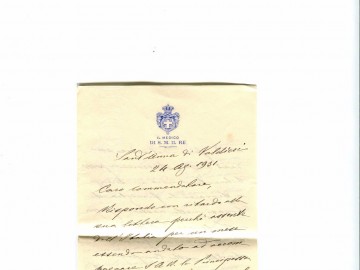 IL MEDICO
DI S. M. IL RE
Sant'Anna di Valdieri
24 Ag. 1931
Caro commendatore,
Rispondo con ritardo alla
sua lettera perchè assente
dall'Italia per un mese
essendo andato ad
S. A. R. la Principessa